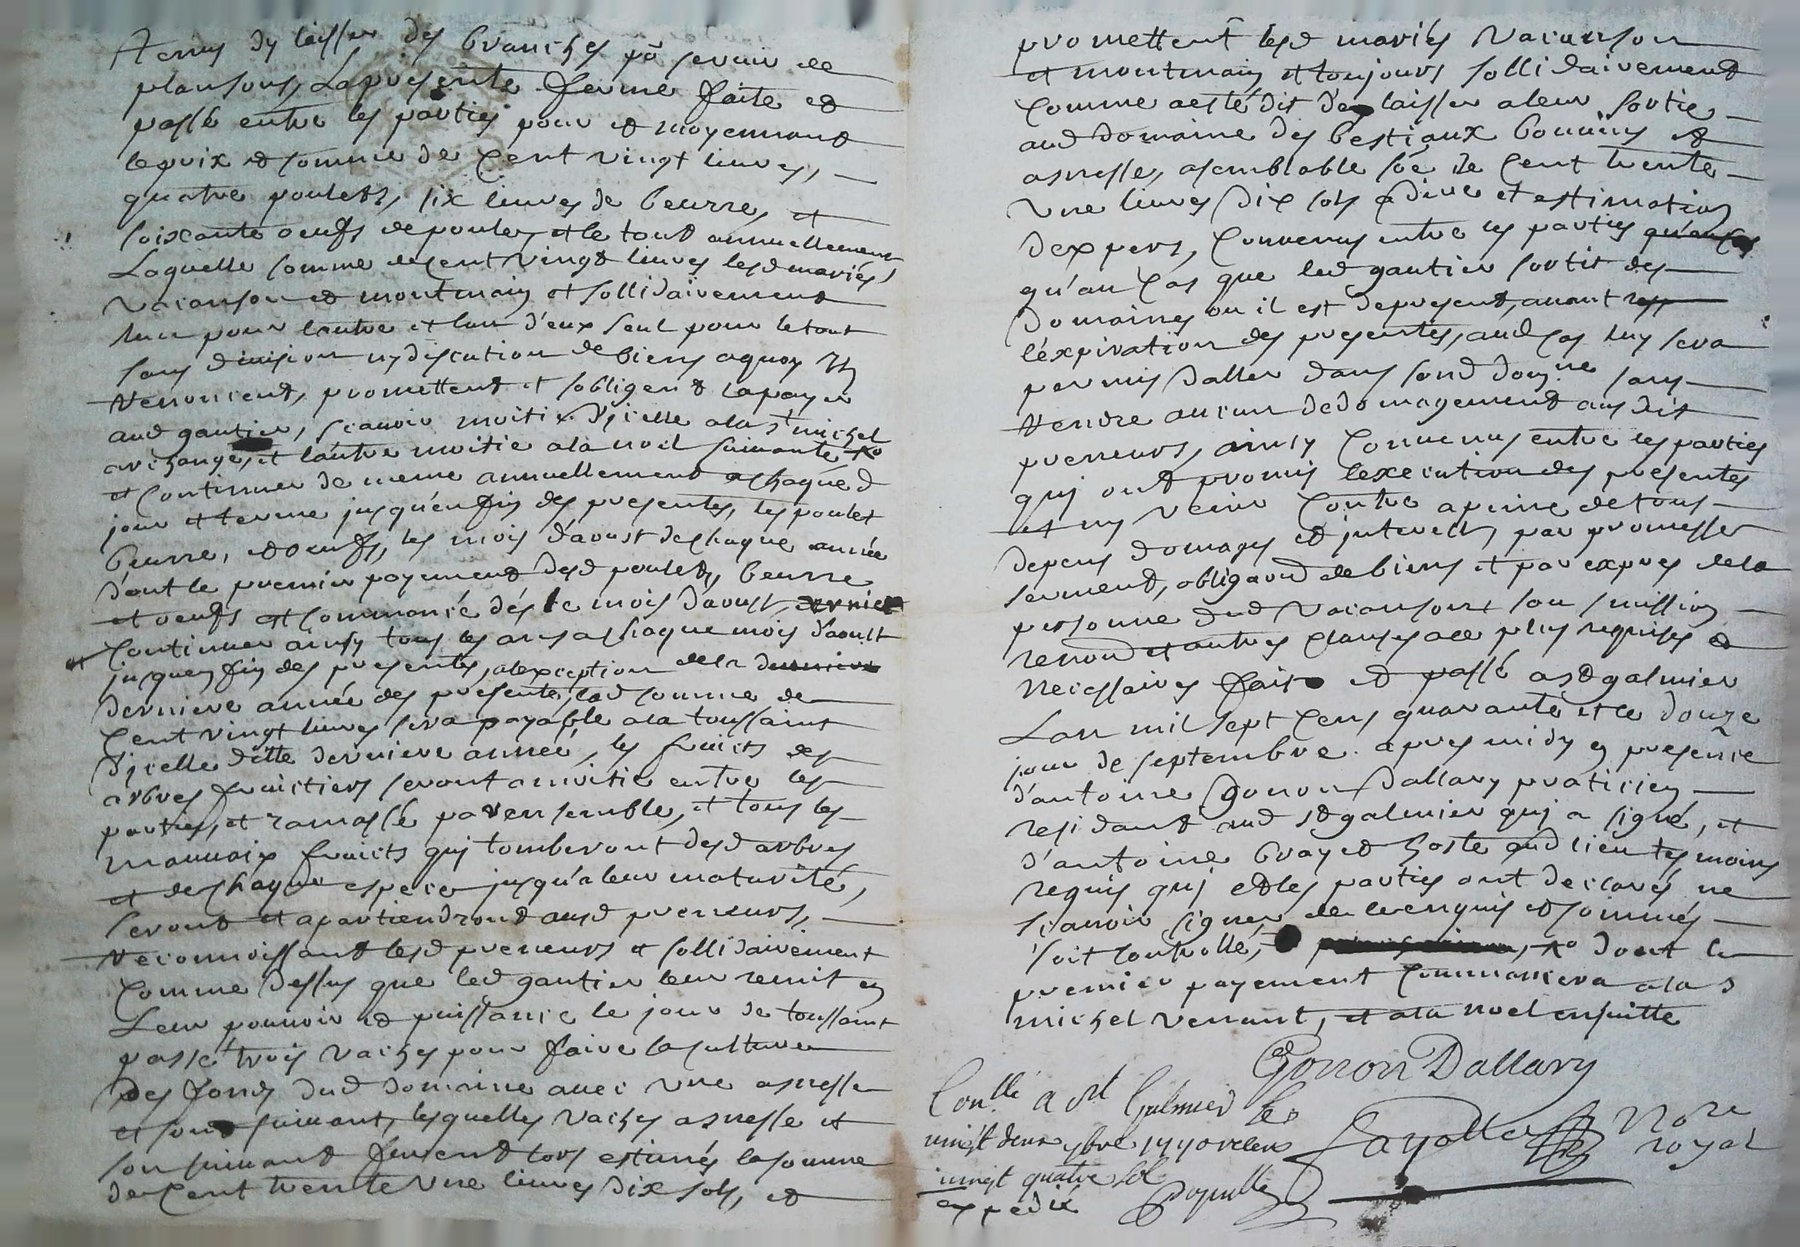 tenus dy laisser des branches po servir de
plansons, La presente ferme faite et
passé entre les parties pour et moyennant
le prix et somme de Cent vingt livres,
quatre poulets, six livres de beurre, et
soixante oeufs de poules, et le tout annuellement
Laquelle somme de Cent vingt livres lesd mariés
Vacanson et montmain et sollidairement
lun pour lautre et lun d'eux seul pour le tout
sans division ny discution de biens aquoy ils
Renoncent, promettent et sobligent la payer
aud gautier, scavoir moitié dicelle a la st michel
archange, et lautre moitié a la noel suivante
et Continuer de meme annuellement a chaque d
jour et terme jusqu'en fin des presentes, les poulet
beurre, et oeufs, les mois d'aoust de chaque année
dont le premier payement desd poulets, beurre
et oeufs est Commancé dés le mois d'aoust, dernier
et Continuer ainsy tous les ans a chaque mois d'aoust
jusquen fin des presentes, a lexception de la derniere
derniere année des presentes, lad somme de
Cent vingt livres sera payable a la toussaint
dicelle ditte derniere année, les fruits des
arbres fruictiers seront a moitié entre les
parties, et ramassé par ensemble, et tous les
mauvaix fruicts qui tomberont desd arbres
et de chaque espece jusqu'a leur maturité,
seront et apartiendront ausd preneurs,
Reconnoissant lesd preneurs et sollidairement
Comme dessus que led gautier leur remit en
Leur pouvoir et puissance le jour de toussaint
passé trois vaches pour faire la culture
des fonds dud domaine avec une asnesse
et son suivant, lesquelles vaches asnesse et
son suivant furent lors estimés la somme
de Cent trente une livres dix sols, et
promettent lesd mariés Vacanson
et montmain et toujours sollidairement
Comme a esté dit de laisser a leur sortie
aud domaine des bestiaux bouvins et
asnesse, a semblable soe de Cent trente
une livres dix sols a dire et estimation
dexpers, Convenus entre les parties
qu'au Cas que led gautier sortit des
domaines ou il est de present, avant
léxpiration des presentes, aud Cas luy sera
permis daller dans sond domne sans
Rendre aucun dedomagement ausdit
preneurs, ainsy Convenus entre les parties
qui ont promis lexecution des presentes
et ny venir Contre a peine de tous
depens domages et jnterests, par promesse
serment, obligaon de biens et par expres de la
personne dud Vacanson soumission
renon et autres clauses a ce plus requises et
necessaires fait et passé a st galmier
Lan mil sept Cens quarante et le douze
jour de septembre apres midy en presence
d'antoine Gonon Dallary praticien
residant aud st galmier qui a signé, et
d'antoine brayet hoste aud lieu tesmoins
requis qui et les parties ont declarés ne
scavoir signer de ce enquis et sommés
soit controllé, dont le
premier payement Commancera a la s
michel venant, et a la noel ensuitte
Gonon Dallary
Conllé a st Galmier le
vingt deux 7bre 1740 receu
vingt quatre sol
expédié
Fayolle Nore
royal